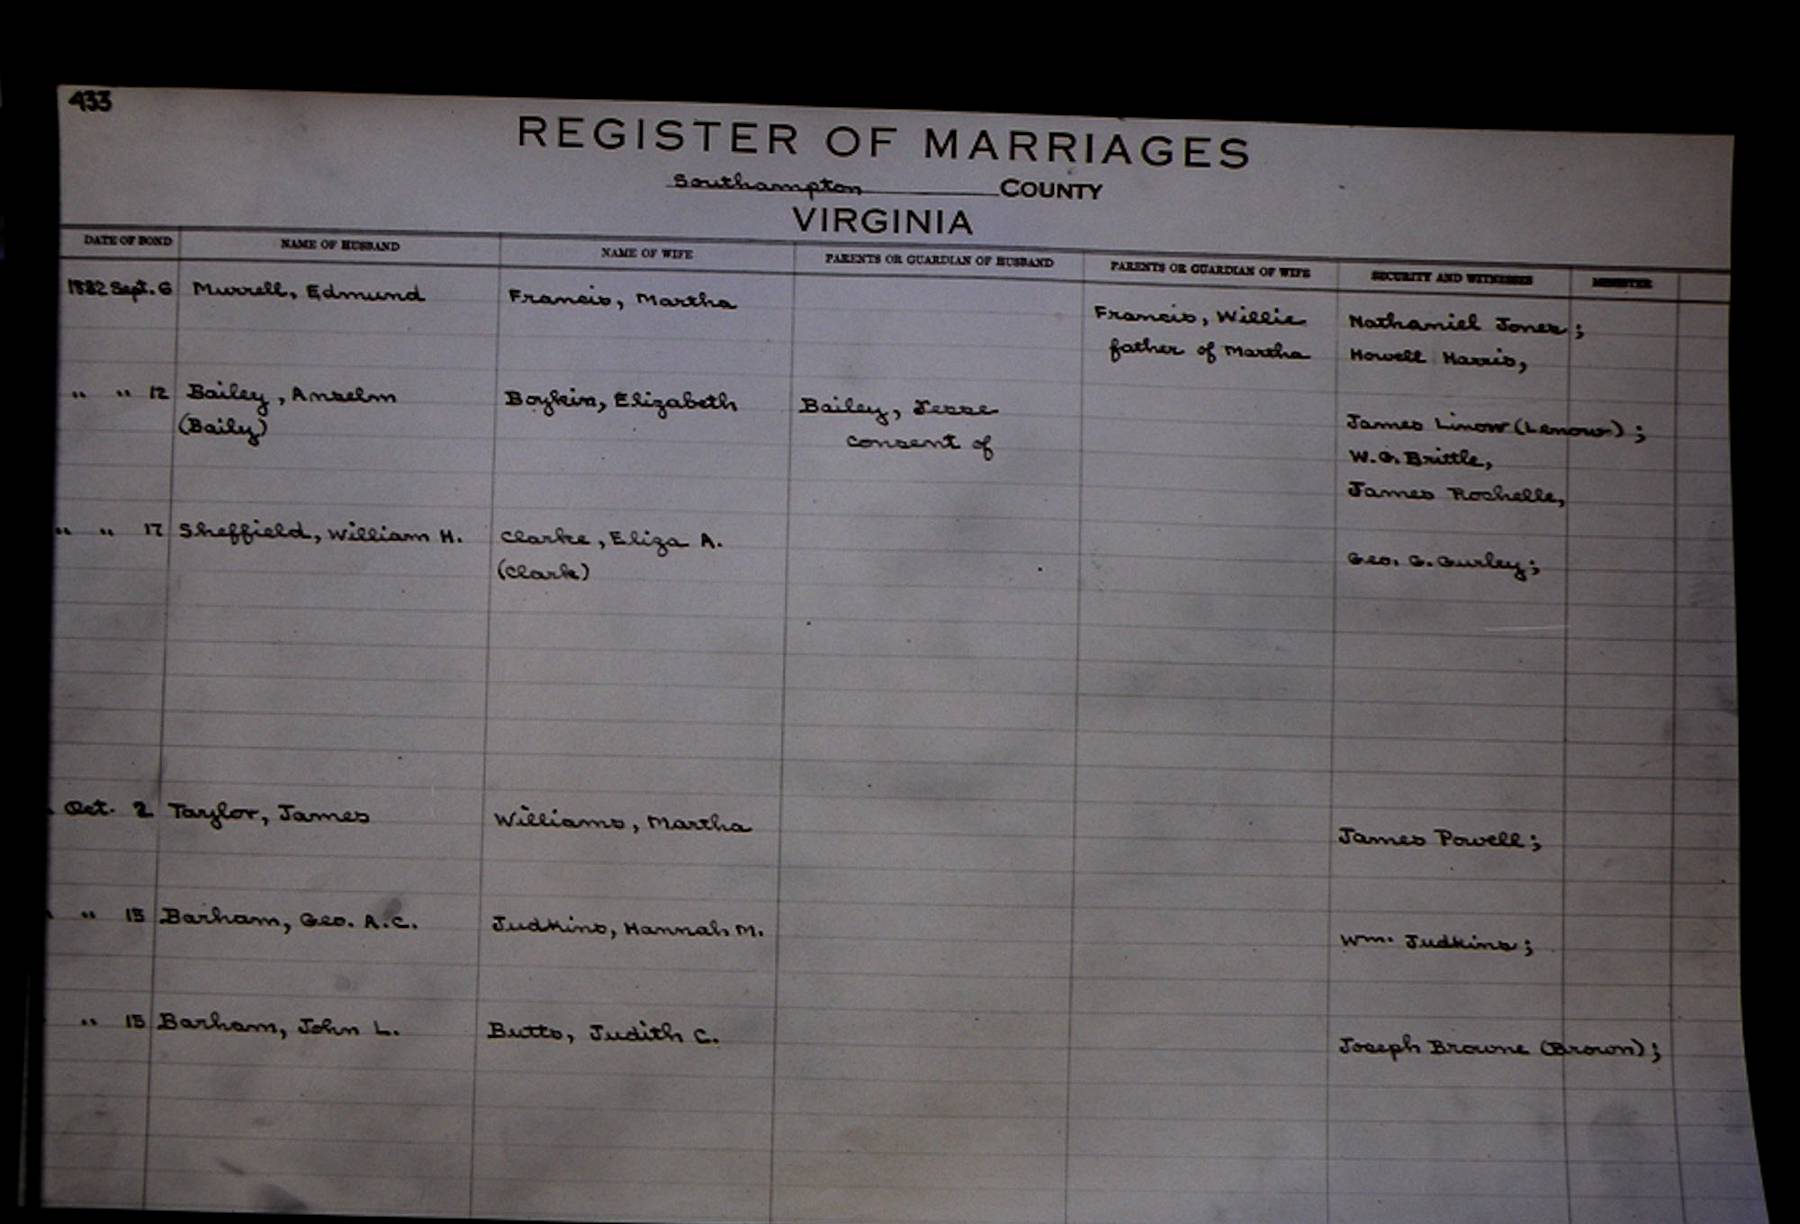 433
REGISTER OF MARRIAGES
Southampton COUNTY
VIRGINIA
DATE OF BOND NAME OF HUSBAND NAME OF WIFE PARENTS OR GUARDIAN OF HUSBAND PARENTS OR GUARDIAN OF WIFE SECURITY AND WITNESSES MINISTER
1832 Sept. 6 Murrell, Edmund Francis, Martha Francis, Willie Nathaniel Jones;
father of Martha Howell Harris,
" " 12 Bailey, Anselm Boykin, Elizabeth Bailey, Jesse James Linow (Lenow);
(Baily) consent of W. G. Brittle,
James Rochelle,
" " 17 Sheffield, William H. Clarke, Eliza A. Geo. G. Gurley;
(Clark)
Oct. 2 Taylor, James Williams, Martha James Powell;
" 15 Barham, Geo. A.C. Judkins, Hannah M. Wm. Judkins;
" 15 Barham, John L. Butts, Judith C. Joseph Browne (Brown);